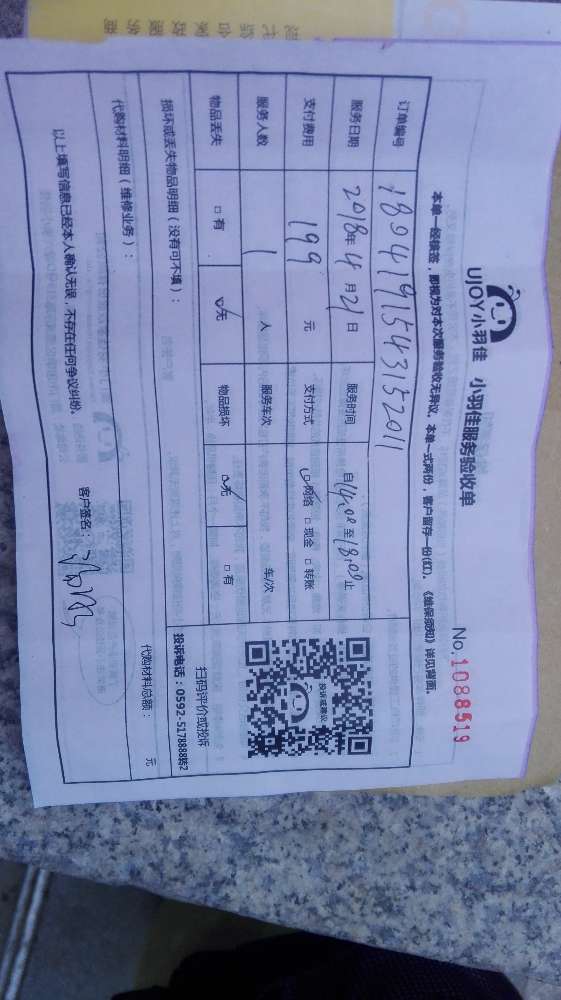 UJOY小羽佳 小羽佳服务验收单
No.1088519
本单一经接签，即视为对本次服务验收无异议。本单一式两份，客户留存一份(红)。《维保须知》详见背面。
订单编号 1804191543152011
服务日期 2018年4月21日 服务时间 自14:00至18:00止
支付费用 199 元 支付方式 ☑网络 □现金 □转账
服务人数 1 人 服务车次 车/次
物品丢失 □有 ☑无 物品损坏 ☑无 □有
投诉或建议
扫码评价或投诉
投诉电话：0592-5178888转2
损坏或丢失物品明细（没有可不填）：
代购材料明细（维修业务）： 代购材料总额： 元
以上填写信息已经本人确认无误，不存在任何争议纠纷。 客户签名：